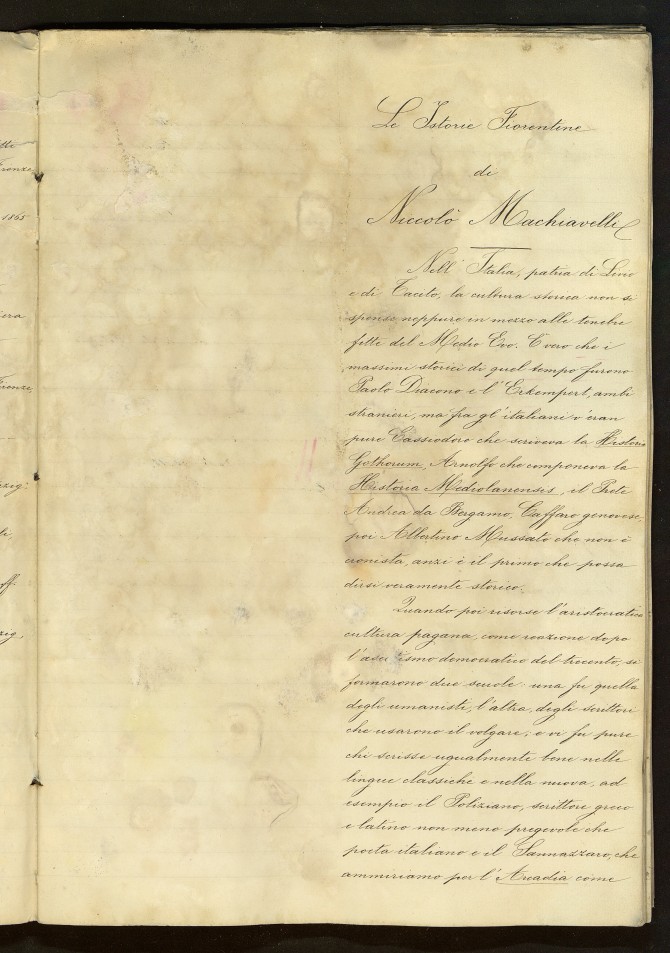 1865
Le Istorie Fiorentine
di
Niccolò Machiavelli
Nell' Italia, patria di Livio
e di Tacito, la cultura storica non si
spense neppure in mezzo alle tenebre
fitte del Medio Evo. È vero che i
massimi storici di quel tempo furono
Paolo Diacono e l'Erkempert, ambi
stranieri, ma fra gl'italiani v'eran
pure Cassiodoro che scriveva la Historia
Gothorum, Arnolfo che componeva la
Historia Mediolanensis, il Prete
Andrea da Bergamo, Caffaro genovese,
poi Albertino Mussato che non è
cronista, anzi è il primo che possa
dirsi veramente storico.
Quando poi risorse l'aristocratica
cultura pagana, come reazione dopo
l'ascetismo democratico del trecento, si
formarono due scuole: una fu quella
degli umanisti, l'altra, degli scrittori
che usarono il volgare; e vi fu pure
chi scrisse ugualmente bene nelle
lingue classiche e nella nuova, ad
esempio il Poliziano, scrittore greco
e latino non meno pregevole che
poeta italiano e il Sannazzaro, che
ammiriamo per l'Arcadia come